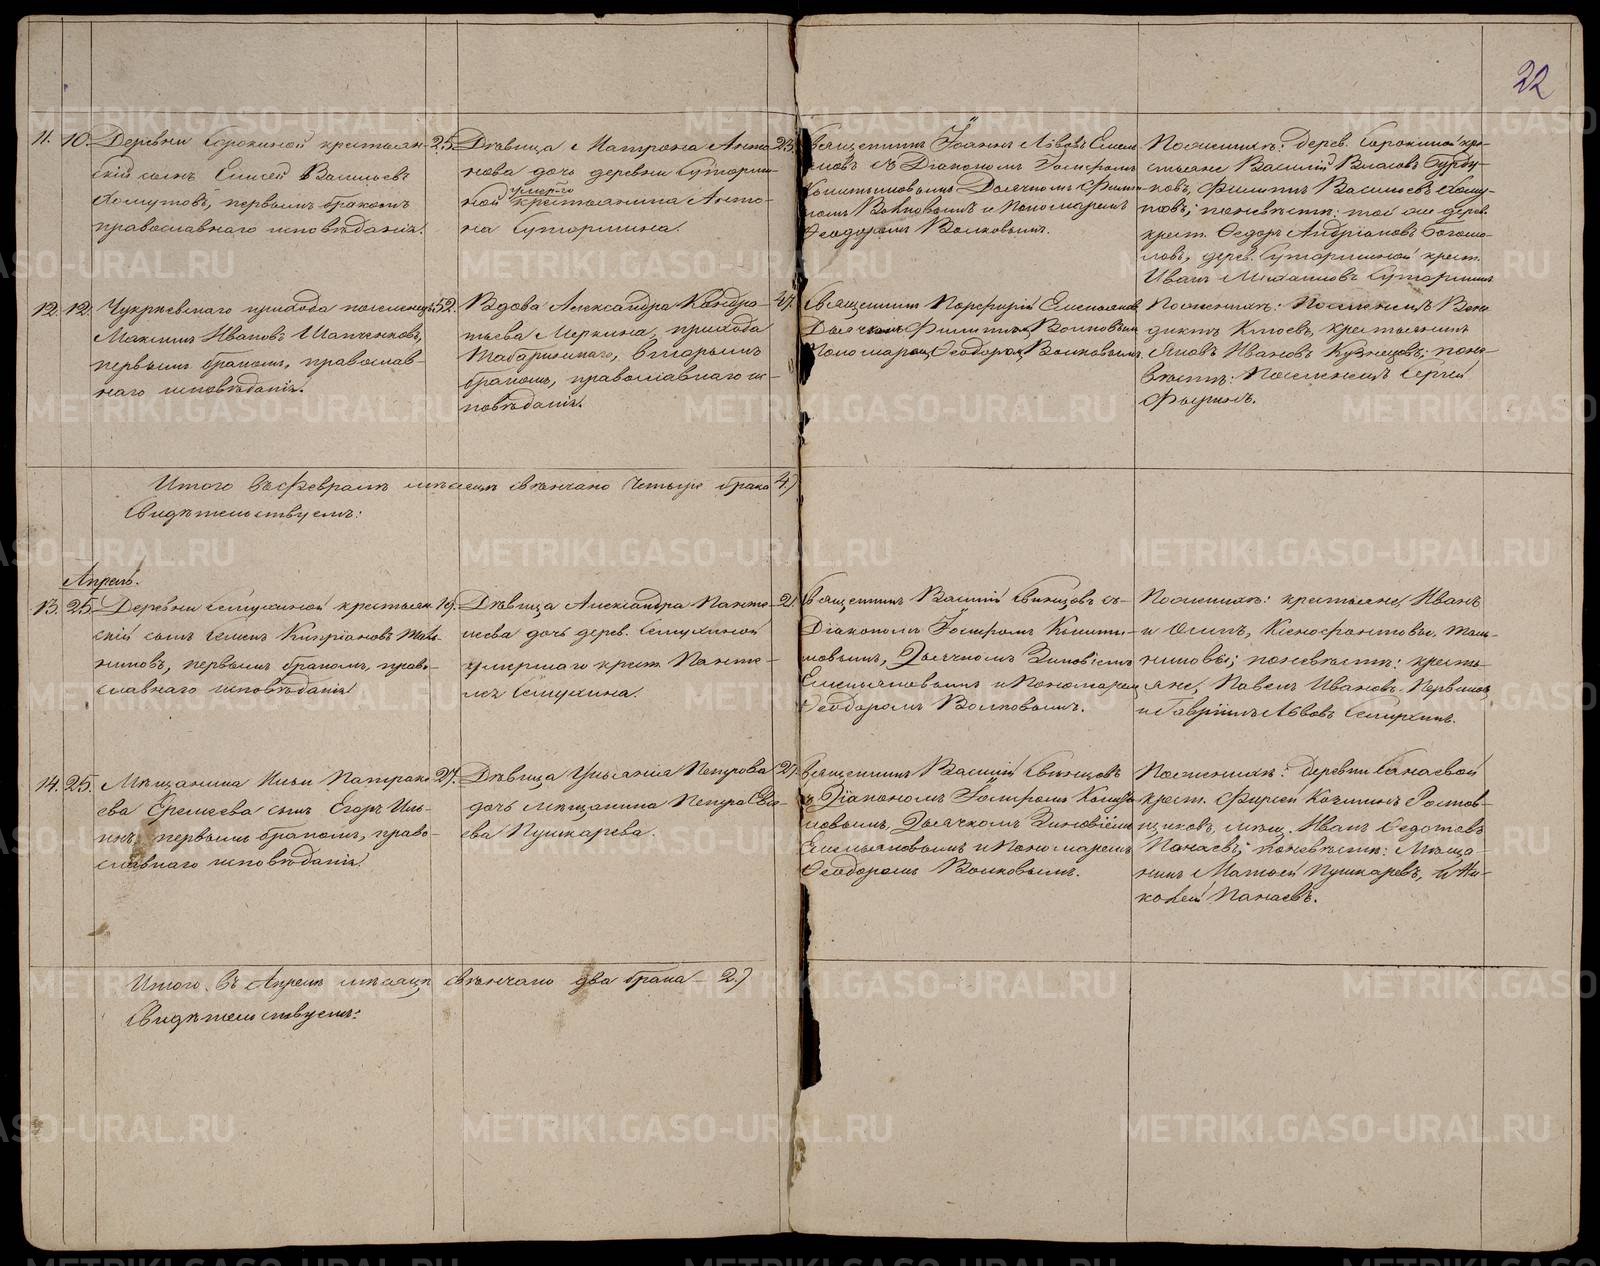 22
11. 10. Деревни Сорокиной крестьян-
скій сынъ Елисей Васильевъ
Хомутовъ, первымъ бракомъ
православнаго исповѣданія.
25.
Дѣвица Матрона Анто-
нова дочь деревни Сутормин-
ной умерш
крестьянина Анто-
на Сутормина.
23.
Священникъ Іоаннъ Львовъ Емель
яновъ съ Діакономъ Іосифомъ
Дьячкомъ Филип-
помъ Волковымъ и Пономаремъ
Ѳеодоромъ Волковымъ.
Поженихѣ: дерев. Сорокиной кре-
стьяне Василій Власовъ
Филиппъ Васильевъ Хому-
товъ; поневѣстѣ: той же дерев.
крест. Ѳедоръ Андріановъ Богомо-
ловъ, дерев. Суторминой крест.
Иванъ Михаиловъ Суторминъ
12. 12. Чукреевскаго прихода поселенецъ
Максимъ Ивановъ Шапченковъ,
первымъ бракомъ, православ-
наго исповѣданія.
52.
Вдова Александра Кондра-
тьева Меркина, прихода
Табаринскаго, вторымъ
бракомъ, православнаго ис-
повѣданія.
47.
Священникъ Порфирій Емельяновъ
Дьячкомъ Филиппомъ Волковымъ
Пономаремъ Ѳеодоромъ Волковымъ.
Поженихѣ: Поселенецъ Вене-
диктъ Клюевъ, крестьянинъ
Яковъ Ивановъ Кузнецовъ; поне-
вѣстѣ: Поселенецъ Сергей
Итого въ Февралѣ мѣсяцѣ свѣнчано Четыре брака 4)
Свидѣтельствуемъ:
Апрель.
13. 25. Деревни Семухиной крестьян-
скій сынъ Семенъ Кипріановъ
первымъ бракомъ, право-
славнаго исповѣданія
19.
Дѣвица Александра Панте-
леева дочь дерев. Семухиной
умершаго крест. Панте-
лея Семухина.
21.
Священникъ Василій Свинцовъ съ
Діакономъ Іосифомъ
Дьячкомъ Зиновіемъ
Емельяновымъ и Пономаремъ
Ѳеодоромъ Волковымъ.
Поженихѣ: крестьяне, Иванъ
и Осипъ, Ксенофонтовы,
поневѣстѣ: кресть-
яне, Павелъ Ивановъ Первовъ
и Гавріилъ Львовъ Семухинъ.
14. 25. Мѣщанина Ильи Патрике-
ева Еремеева сынъ Егоръ Иль-
инъ первымъ бракомъ, право-
славнаго исповѣданія
27.
Дѣвица Ульянія Петрова
дочь мѣщанина Петра
Пушкарева.
27.
Священникъ Василій Свинцовъ
съ Діакономъ Іосифомъ
Дьячкомъ Зиновіемъ
Емельяновымъ и Пономаремъ
Ѳеодоромъ Волковымъ.
Поженихѣ: деревни Санаевой
крест. Фирсъ Козминъ Ростов-
щиковъ, мѣщ. Иванъ Ѳедотовъ
Панаевъ; поневѣстѣ: Мѣща-
нинъ Матвей Пушкаревъ, и Ни-
колай Панаевъ.
Итого въ Апрелѣ мѣсяцѣ свѣнчано два брака 2.)
Свидѣтельствуемъ:
METRIKI.GASO-URAL.RU